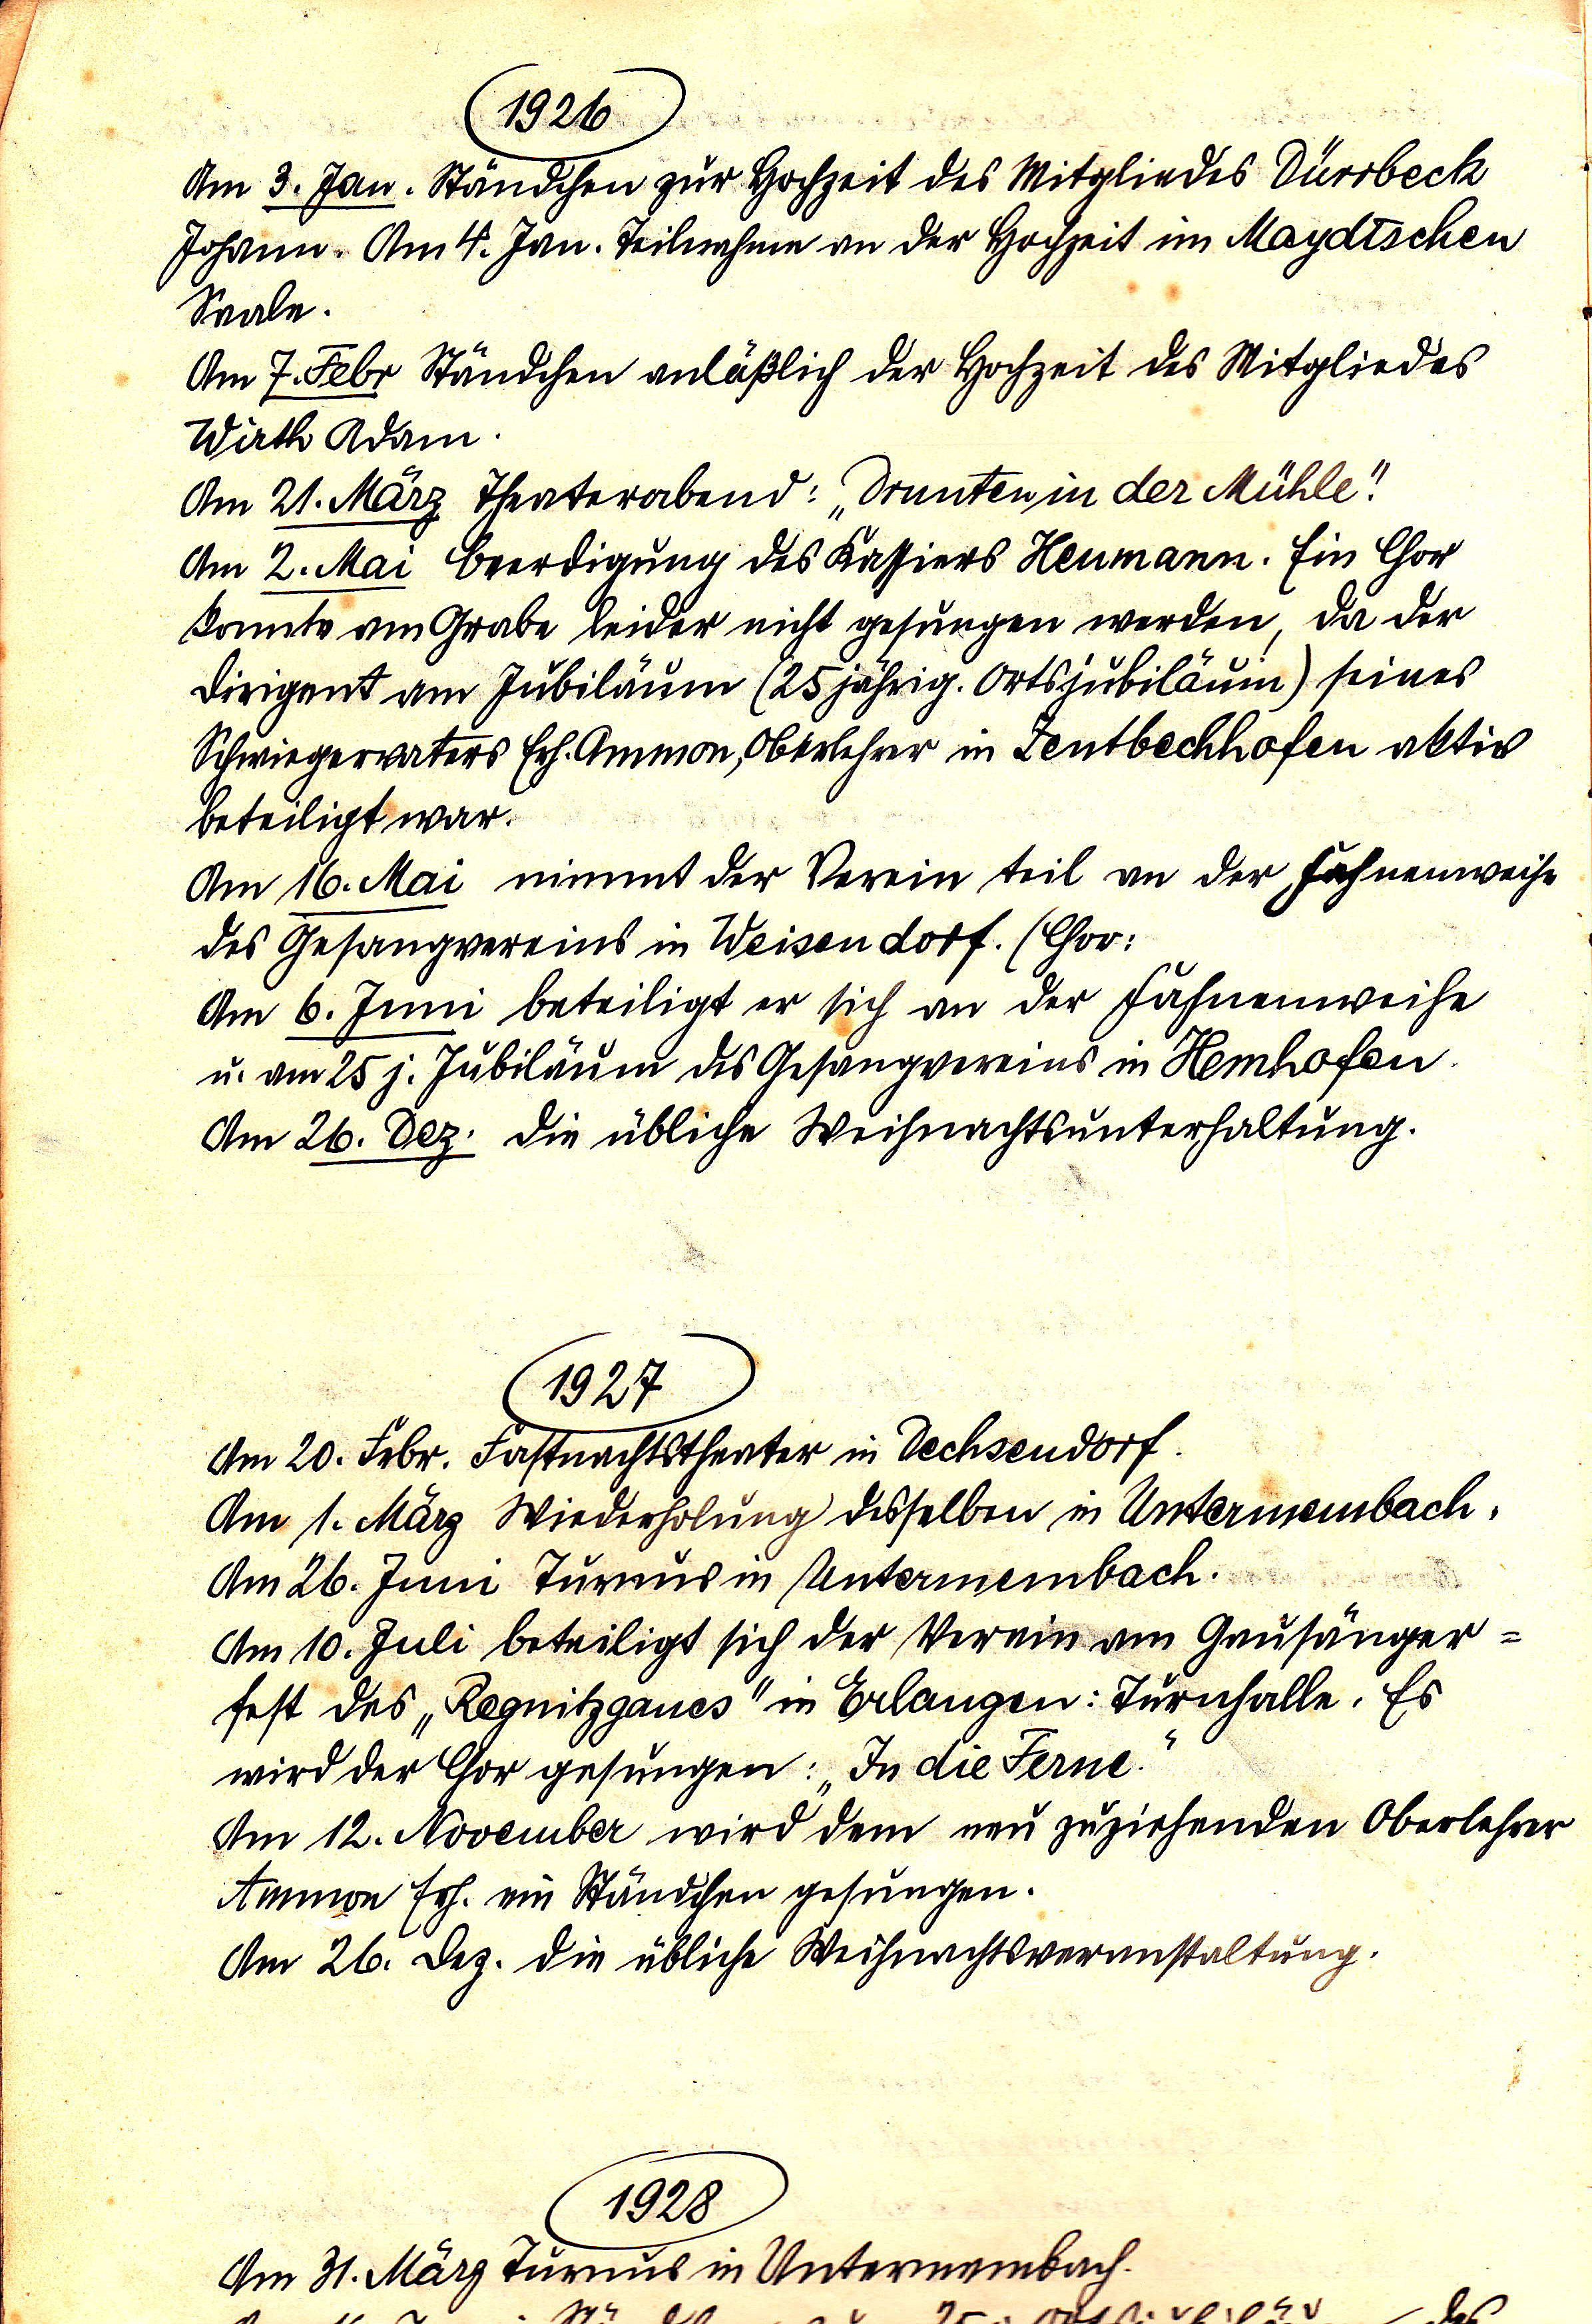 1926
Am 3. Jan. Ständchen zur Hochzeit des Mitgliedes Dürrbeck
Johann. Am 4. Jan. Teilnahme an der Hochzeit im Maydtschen
Saale.
Am 7. Febr Ständchen anläßlich der Hochzeit des Mitgliedes
Wirth Adam.
Am 21. März Theaterabend: „Drunten in der Mühle".
Am 2. Mai Beerdigung des Kassiers Heumann. Ein Chor
konnte am Grabe leider nicht gesungen werden, da der
Dirigent am Jubiläum (25jährig. Ortsjubiläum) seines
Schwiegervaters Erh. Ammon, Oberlehrer in Zentbechhofen aktiv
beteiligt war.
Am 16. Mai nimmt der Verein teil an der Fahnenweihe
des Gesangvereins in Weisendorf. (Chor:
Am 6. Juni beteiligt er sich an der Fahnenweihe
u. am 25 j. Jubiläum des Gesangvereins in Hemhofen.
Am 26. Dez. die übliche Weihnachtsunterhaltung.
1927
Am 20. Febr. Fastnachtstheater in Dechsendorf.
Am 1. März Wiederholung desselben in Untermembach.
Am 26. Juni Turnus in Untermembach.
Am 10. Juli beteiligt sich der Verein am Gausänger=
fest des „Regnitzgaues" in Erlangen: Turnhalle. Es
wird der Chor gesungen: „In die Ferne."
Am 12. November wird dem neu zuziehenden Oberlehrer
Ammon Erh. ein Ständchen gesungen.
Am 26. Dez. die übliche Weihnachtsveranstaltung.
1928
Am 31. März Turnus in Untermembach.